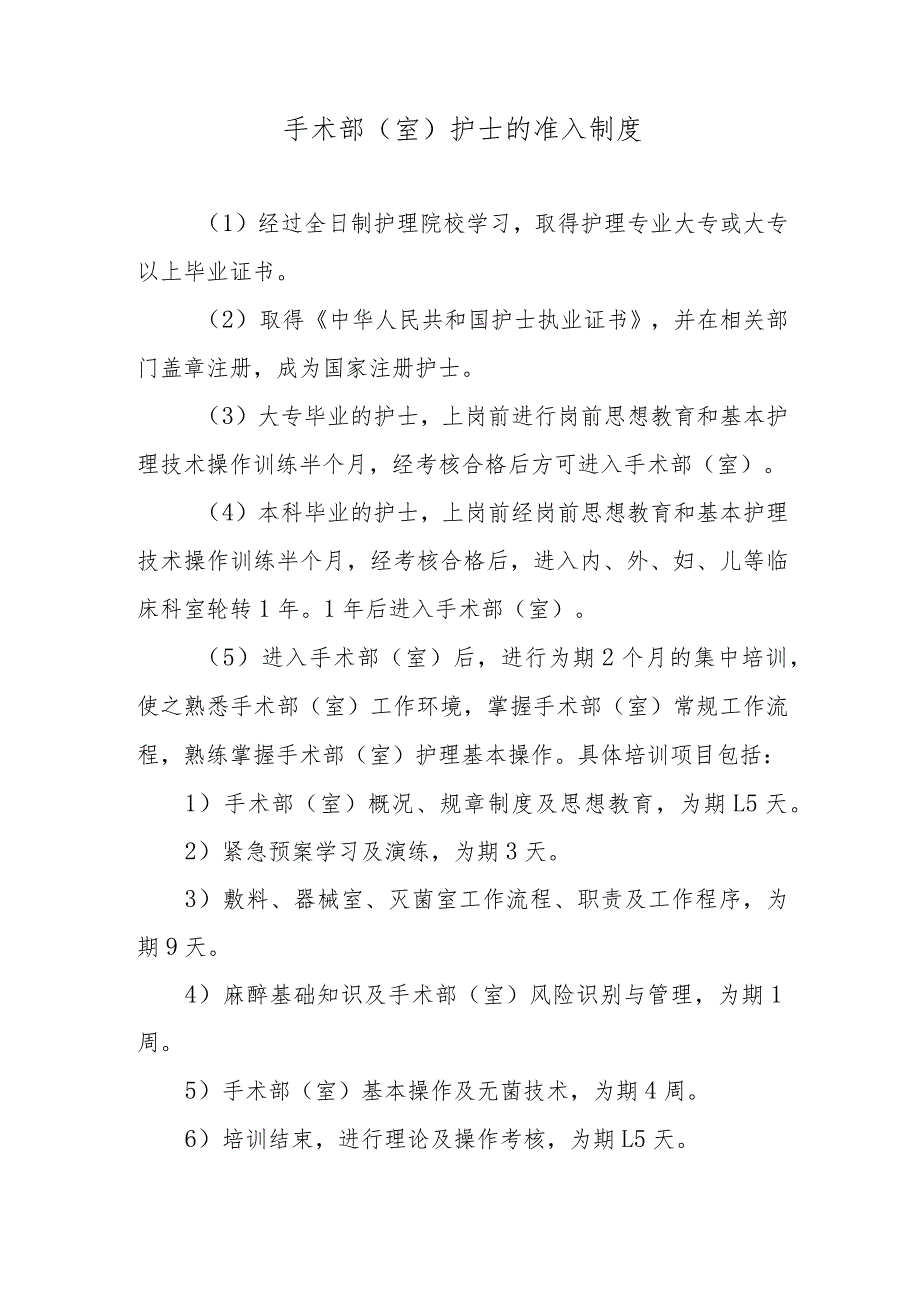 手术部（室）护士的准入制度
（1）经过全日制护理院校学习，取得护理专业大专或大专
以上毕业证书。
（2）取得《中华人民共和国护士执业证书》，并在相关部
门盖章注册，成为国家注册护士。
（3）大专毕业的护士，上岗前进行岗前思想教育和基本护
理技术操作训练半个月，经考核合格后方可进入手术部（室）。
（4）本科毕业的护士，上岗前经岗前思想教育和基本护理
技术操作训练半个月，经考核合格后，进入内、外、妇、儿等临
床科室轮转1年。1年后进入手术部（室）。
（5）进入手术部（室）后，进行为期2个月的集中培训，
使之熟悉手术部（室）工作环境，掌握手术部（室）常规工作流
程，熟练掌握手术部（室）护理基本操作。具体培训项目包括：
1）手术部（室）概况、规章制度及思想教育，为期L5天。
2）紧急预案学习及演练，为期3天。
3）敷料、器械室、灭菌室工作流程、职责及工作程序，为
期9天。
4）麻醉基础知识及手术部（室）风险识别与管理，为期1
周。
5）手术部（室）基本操作及无菌技术，为期4周。
6）培训结束，进行理论及操作考核，为期L5天。